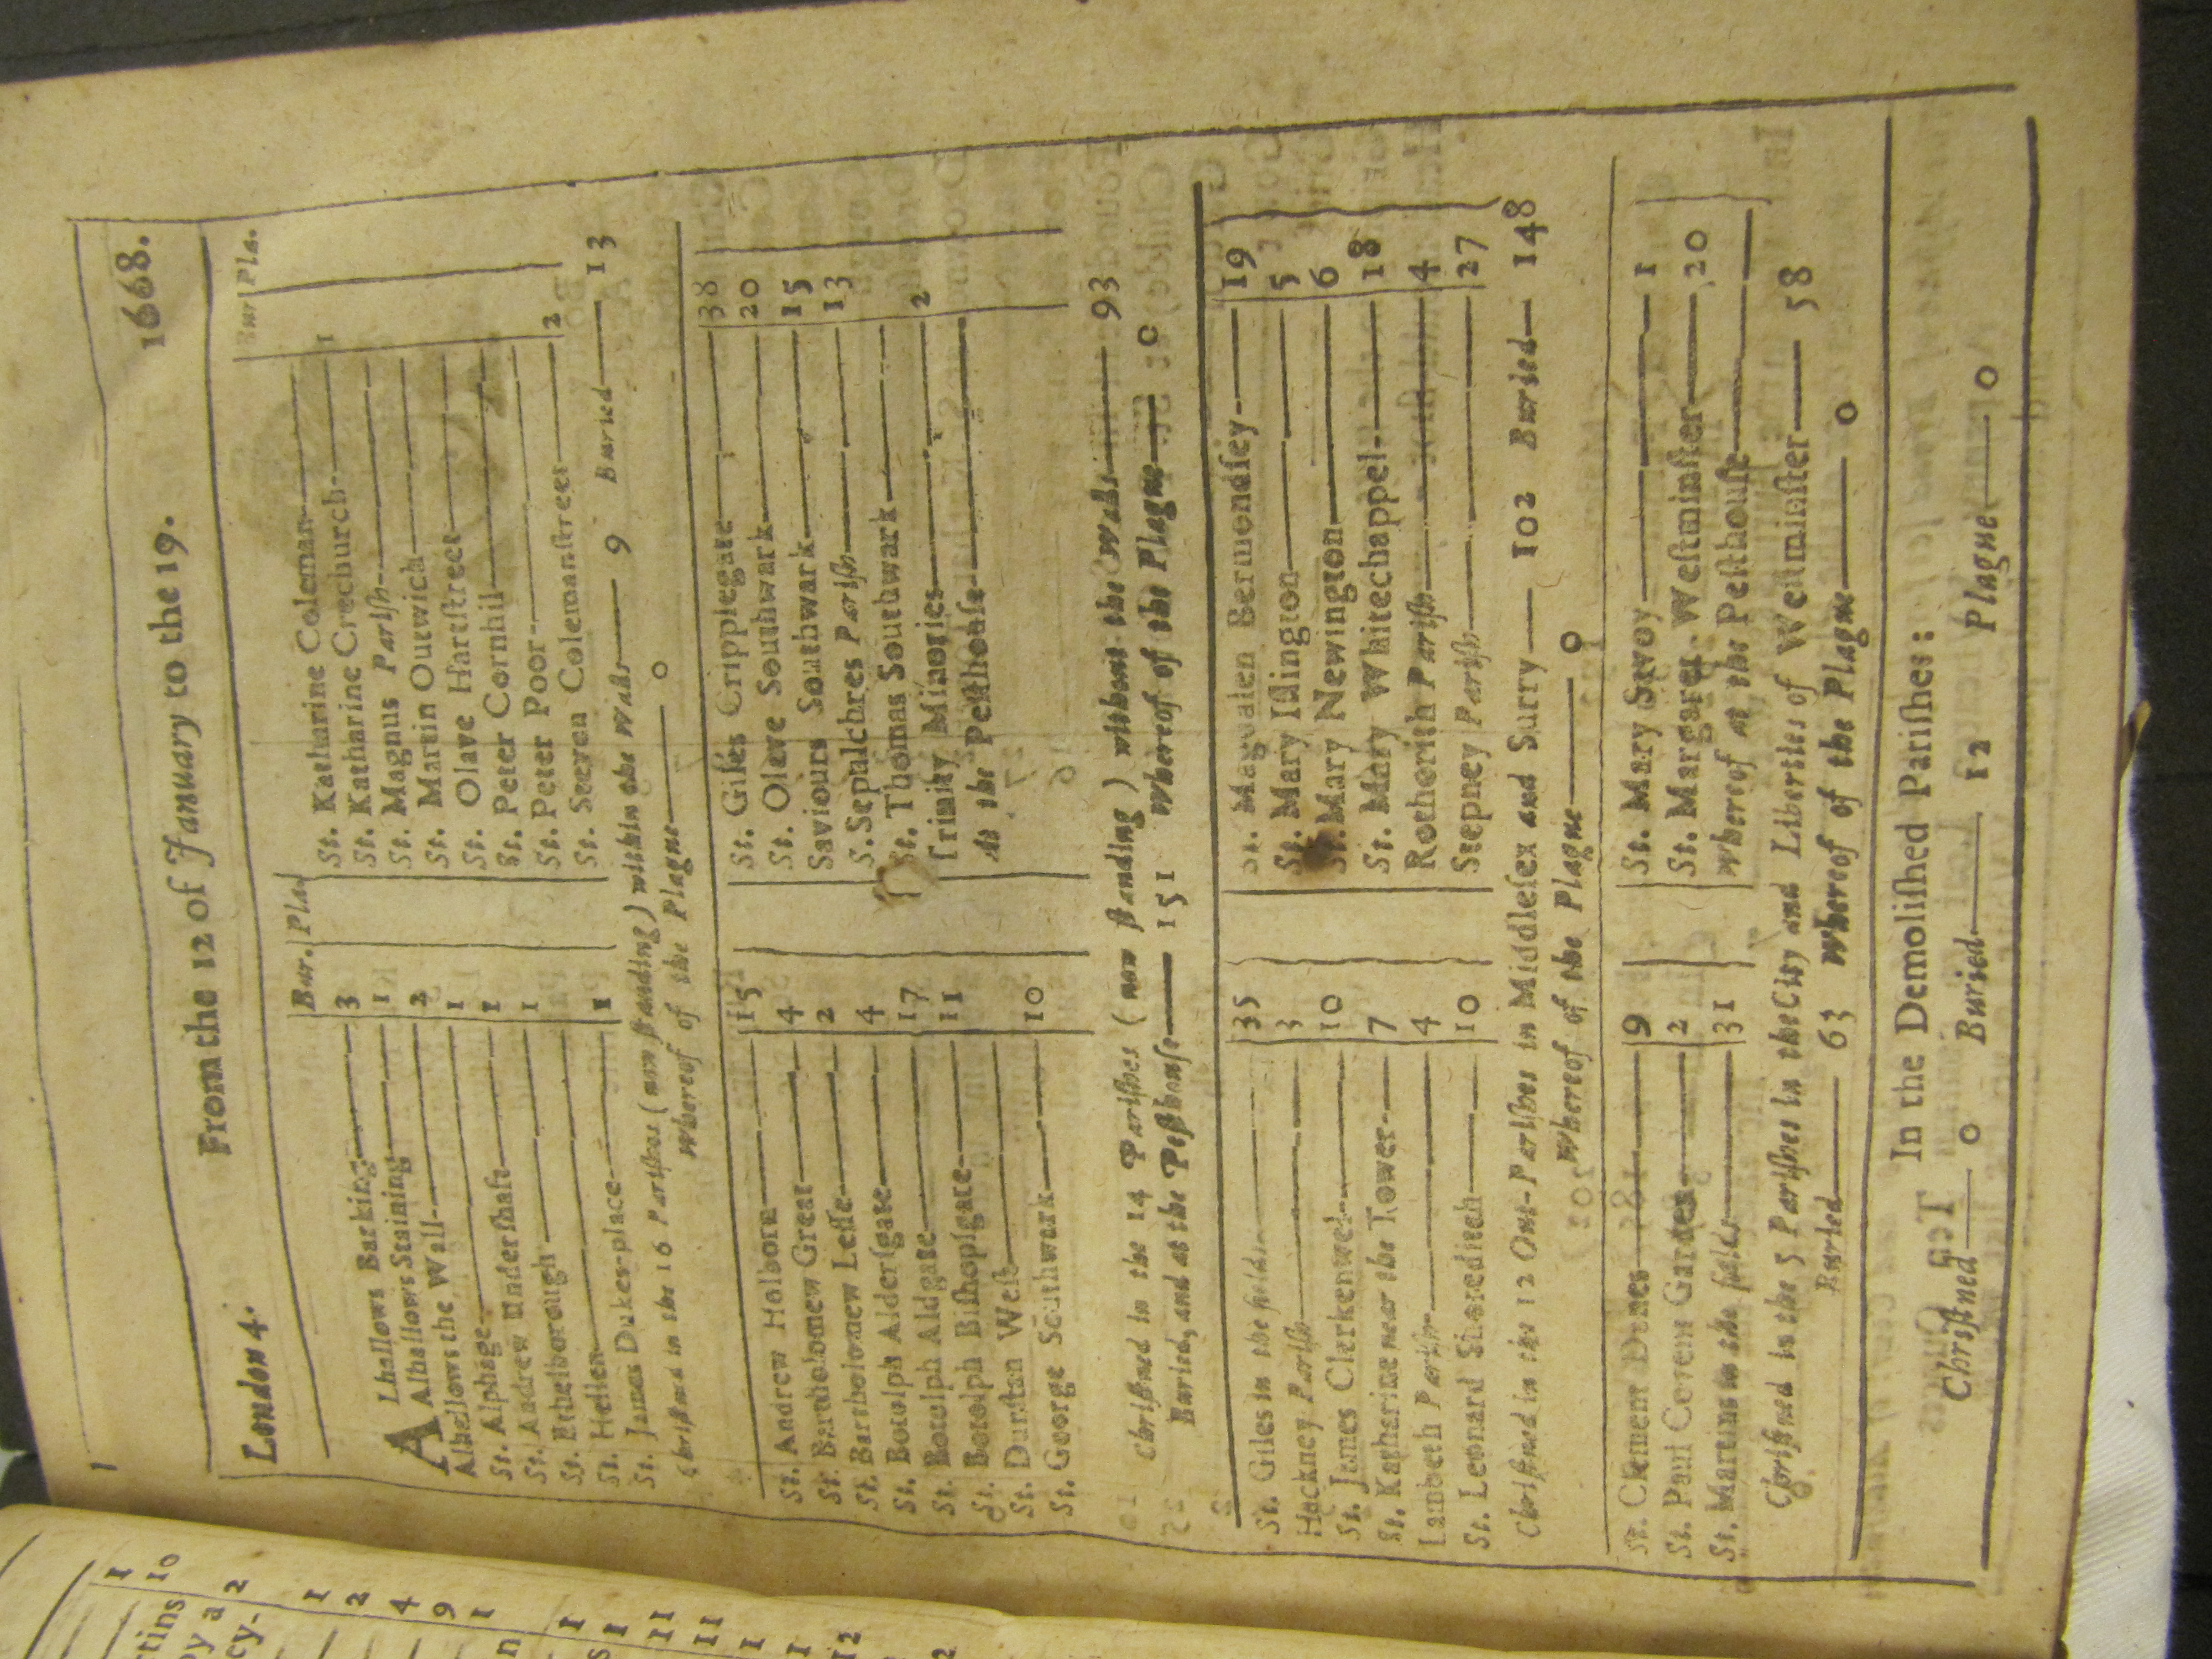 London 4. From the 12 of January to the 19. 1668.
Bur. Pla. Bur Pla.
ALhallows Barking 3
Alhallows Staining 1
Alhallows the Wall 2
St. Alphage 1
St. Andrew Undershaft 1
St. Ethelborough 1
St. Hellen
St. James Dukes-place 1
St. Katharine Coleman
St. Katharine Creechurch 1
St. Magnus Parish
St. Martin Outwich
St. Olave Hartstreet
St. Peter Cornhil
St. Peter Poor
St. Steeven Colemanstreet 2
Christned in the 16 Parishes (now standing) within the Walls 9 Buried 13
Whereof of the Plague 0
St. Andrew Holborn 15
St. Bartholomew Great 4
St. Bartholomew Lesse 2
St. Botolph Aldersgate 4
St. Botolph Aldgate 17
St. Botolph Bishopsgate 11
St. Dunstan West
St. George Southwark 10
St. Giles Cripplegate 38
St. Olave Southwark 20
Saviours Southwark 15
S. Sepulchres Parish 13
St. Thomas Southwark
Trinity Minories 2
At the Pesthouse
Christned in the 14 Parishes (now standing) without the Walls 93
Buried, and at the Pesthouse 151 Whereof of the Plague 0
St. Giles in the fields 35
Hackney Parish 3
St. James Clerkenwel 10
St. Katharine near the Tower 7
Lambeth Parish 4
St. Leonard Shoreditch 10
St. Magdalen Bermondsey 19
St. Mary Islington 5
St. Mary Newington 6
St. Mary Whitechappel 18
Rotherith Parish 4
Stepney Parish 27
Christned in the 12 Out-Parishes in Middlesex and Surry 102 Buried 148
Whereof of the Plague 0
St. Clement Danes 9
St. Paul Covent Garden 2
St. Martins in the fields 31
St. Mary Savoy 1
St. Margaret Westminster 20
Whereof at the Pesthouse
Christned in the 5 Parishes in the City and Liberties of Westminster 58
Buried 63 Whereof of the Plague 0
In the Demolished Parishes:
Christned 0 Buried 12 Plague 0
rtins
py a
cy-
1
10
2
1
2
4
9
1
1
1
11
11
1
1
12
2